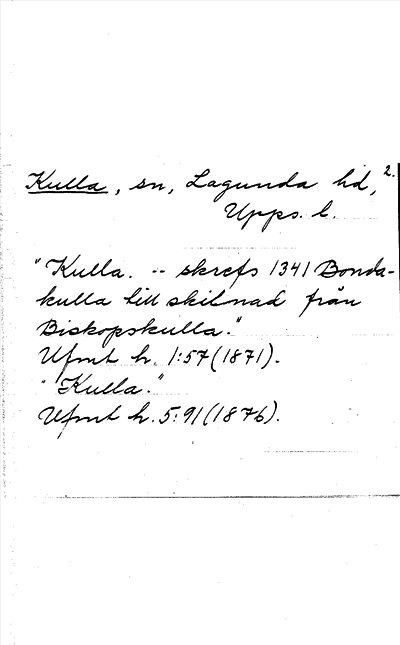 Kulla, sn, Lagunda hd, 2.
Upps. l.
"Kulla. -- skrefs 1341 Bonda-
kulla till skilnad från
Biskopskulla."
Ufmt h. 1:57 (1871).
"Kulla."
Ufmt h. 5:91 (1876).